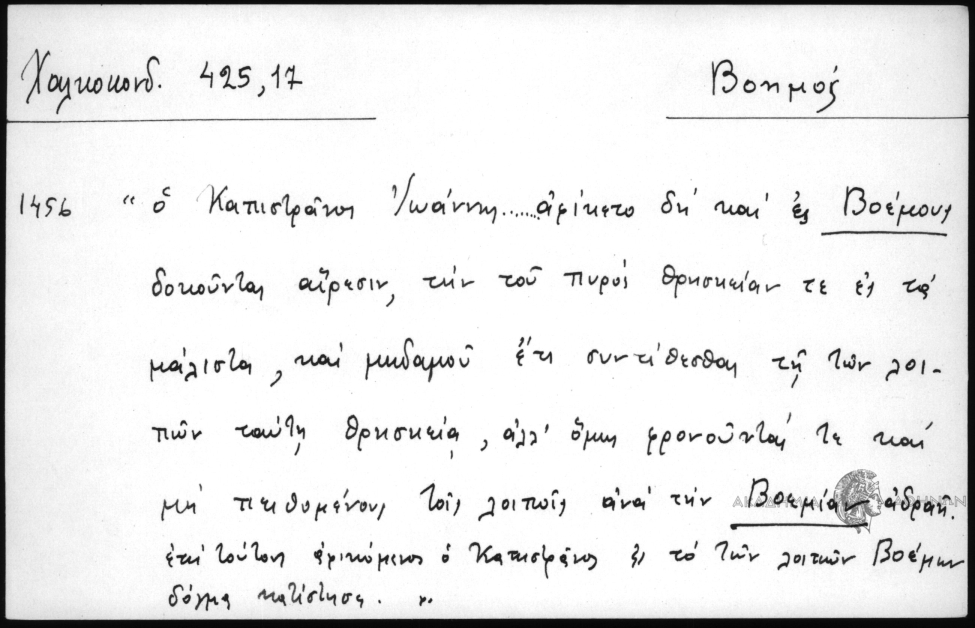 Χαλκοκονδ. 425,17
Βοημός
1456 "ὁ Καπιστρᾶνος Ἰωάννης......ἀφίκετο δὴ καὶ ἐς Βοέμους
δοκοῦντας αἵρεσιν, τὴν τοῦ πυρὸς θρησκείαν τε ἐς τὰ
μάλιστα, καὶ μηδαμοῦ ἔτι συντίθεσθαι τῇ τῶν λοι-
πῶν ταύτῃ θρησκείᾳ, ἀλλ' ὅμως φρονοῦντάς τε καὶ
μὴ πειθομένους τοῖς λοιποῖς ἀνὰ τὴν Βοεμίαν ἀδρανῆ.
ἐπὶ τούτους ἀφικόμενος ὁ Καπιστρᾶνος ἐς τὸ τῶν λοιπῶν Βοέμων
δόγμα κατέστησε. ".
ΑΚΑΔΗΜΙΑ ΑΘΗΝΩΝ